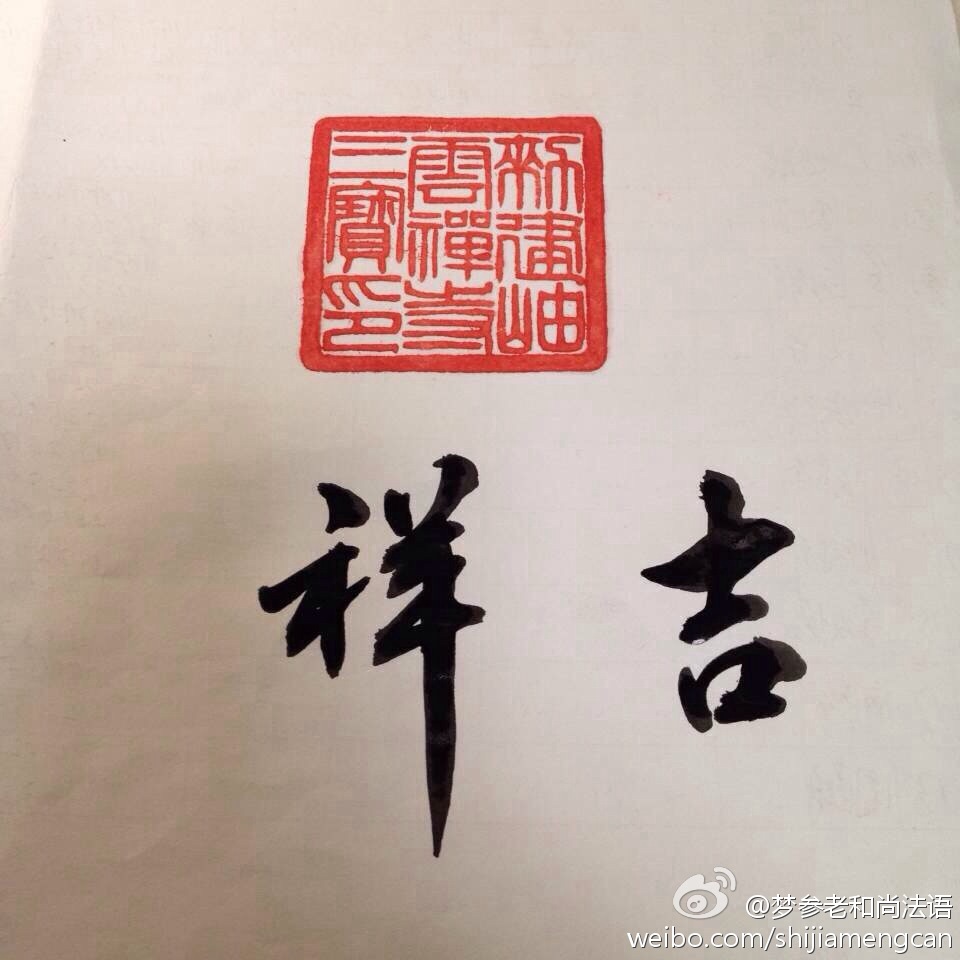 勅建岫
雲禪寺
三寶印
吉祥
@梦参老和尚法语
weibo.com/shijiamengcan